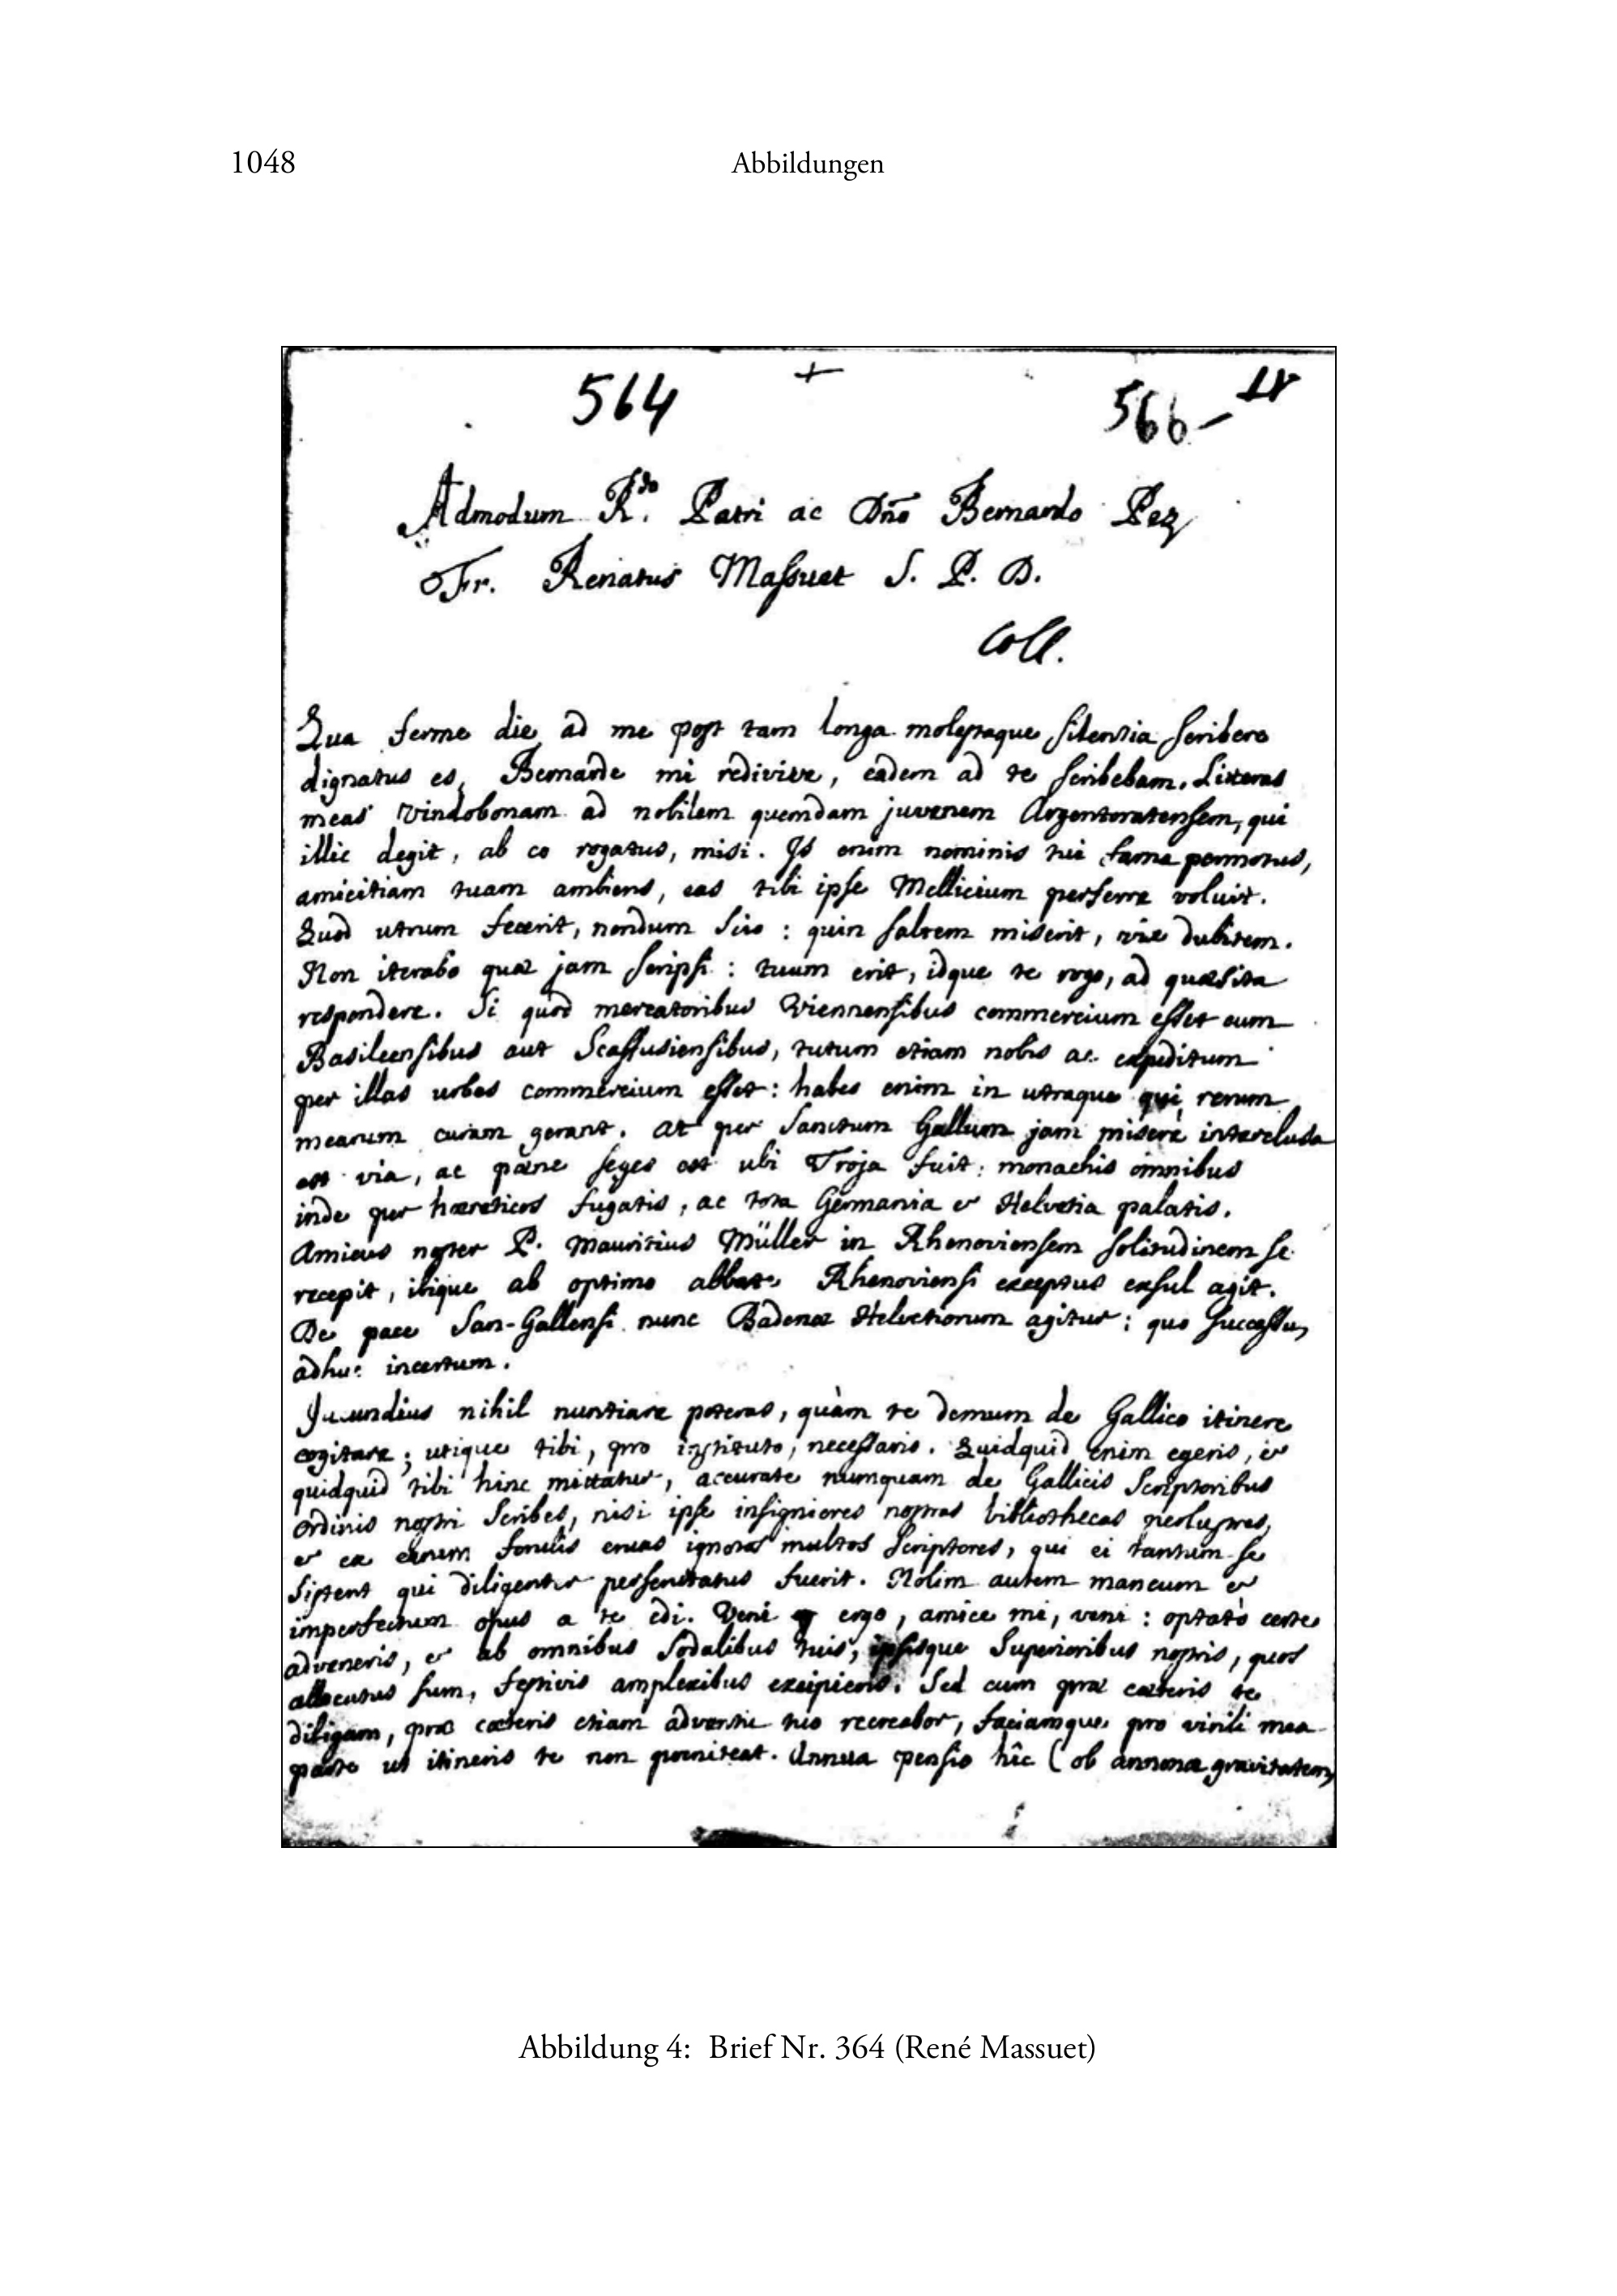 1048
Abbildungen
564
+
566
IV
Admodum R.do Patri ac Dño Bernardo Pez
Fr. Renatus Massuet S. P. D.
Coll.
Qua ferme die ad me post tam longa molestaque silentia scribere
dignatus es, Bernarde mi redivive, eadem ad te scribebam. Litteras
meas Vindobonam ad nobilem quemdam juvenem Argentoratensem, qui
illic degit, ab eo rogatus, misi. Is enim nominis tui fama permotus,
amicitiam tuam ambiens, eas tibi ipse Mellicium perferre voluit.
Quod utrum fecerit, nondum scio : quin saltem miserit, vix dubitem.
Non iterabo quæ jam scripsi : tuum erit, idque te rogo, ad quæsita
respondere. Si quod mercatoribus Viennensibus commercium esset cum
Basileensibus aut Scaffusiensibus, tutum etiam nobis ac expeditum
per illas urbes commercium esset : habes enim in utraque qui rerum
mearum curam gerant. at per Sanctum Gallum jam miserè interclusa
est via, ac pæne seges est ubi Troja fuit : monachis omnibus
inde per hæreticos fugatis, ac tota Germania & Helvetia palatis.
Amicus noster P. Mauritius Müller in Rhenoviensem solitudinem se
recepit, ibique ab optimo abbate Rhenoviensi exceptus exsul agit.
De pace San-Gallensi nunc Badenæ Helvetiorum agitur : quo successu,
adhuc incertum.
Jucundius nihil nuntiare poteras, quàm te demum de Gallico itinere
cogitare ; utique tibi, pro instituto, necessario. Quidquid enim egeris, &
quidquid tibi hinc mittatur, accurate numquam de Gallicis Scriptoribus
Ordinis nostri scribes, nisi ipse insigniores nostras bibliothecas perlustres,
& ex earum forulis eruas ignotos multos Scriptores, qui ei tantum se
sistent qui diligenter perscrutatus fuerit. Nolim autem mancum &
imperfectum opus a te edi. Veni ergo, amice mi, veni : optatò certe
adveneris, & ab omnibus sodalibus tuis, ipsisque Superioribus nostris, quos
allocutus sum, festivis amplexibus excipieris. Sed cum præ cæteris te
diligam, præ cæteris etiam adventu tuo recreabor, faciamque pro virili mea
parte ut itineris te non pœniteat. Annua pensio hîc ( ob annonæ gravitatem
Abbildung 4: Brief Nr. 364 (René Massuet)